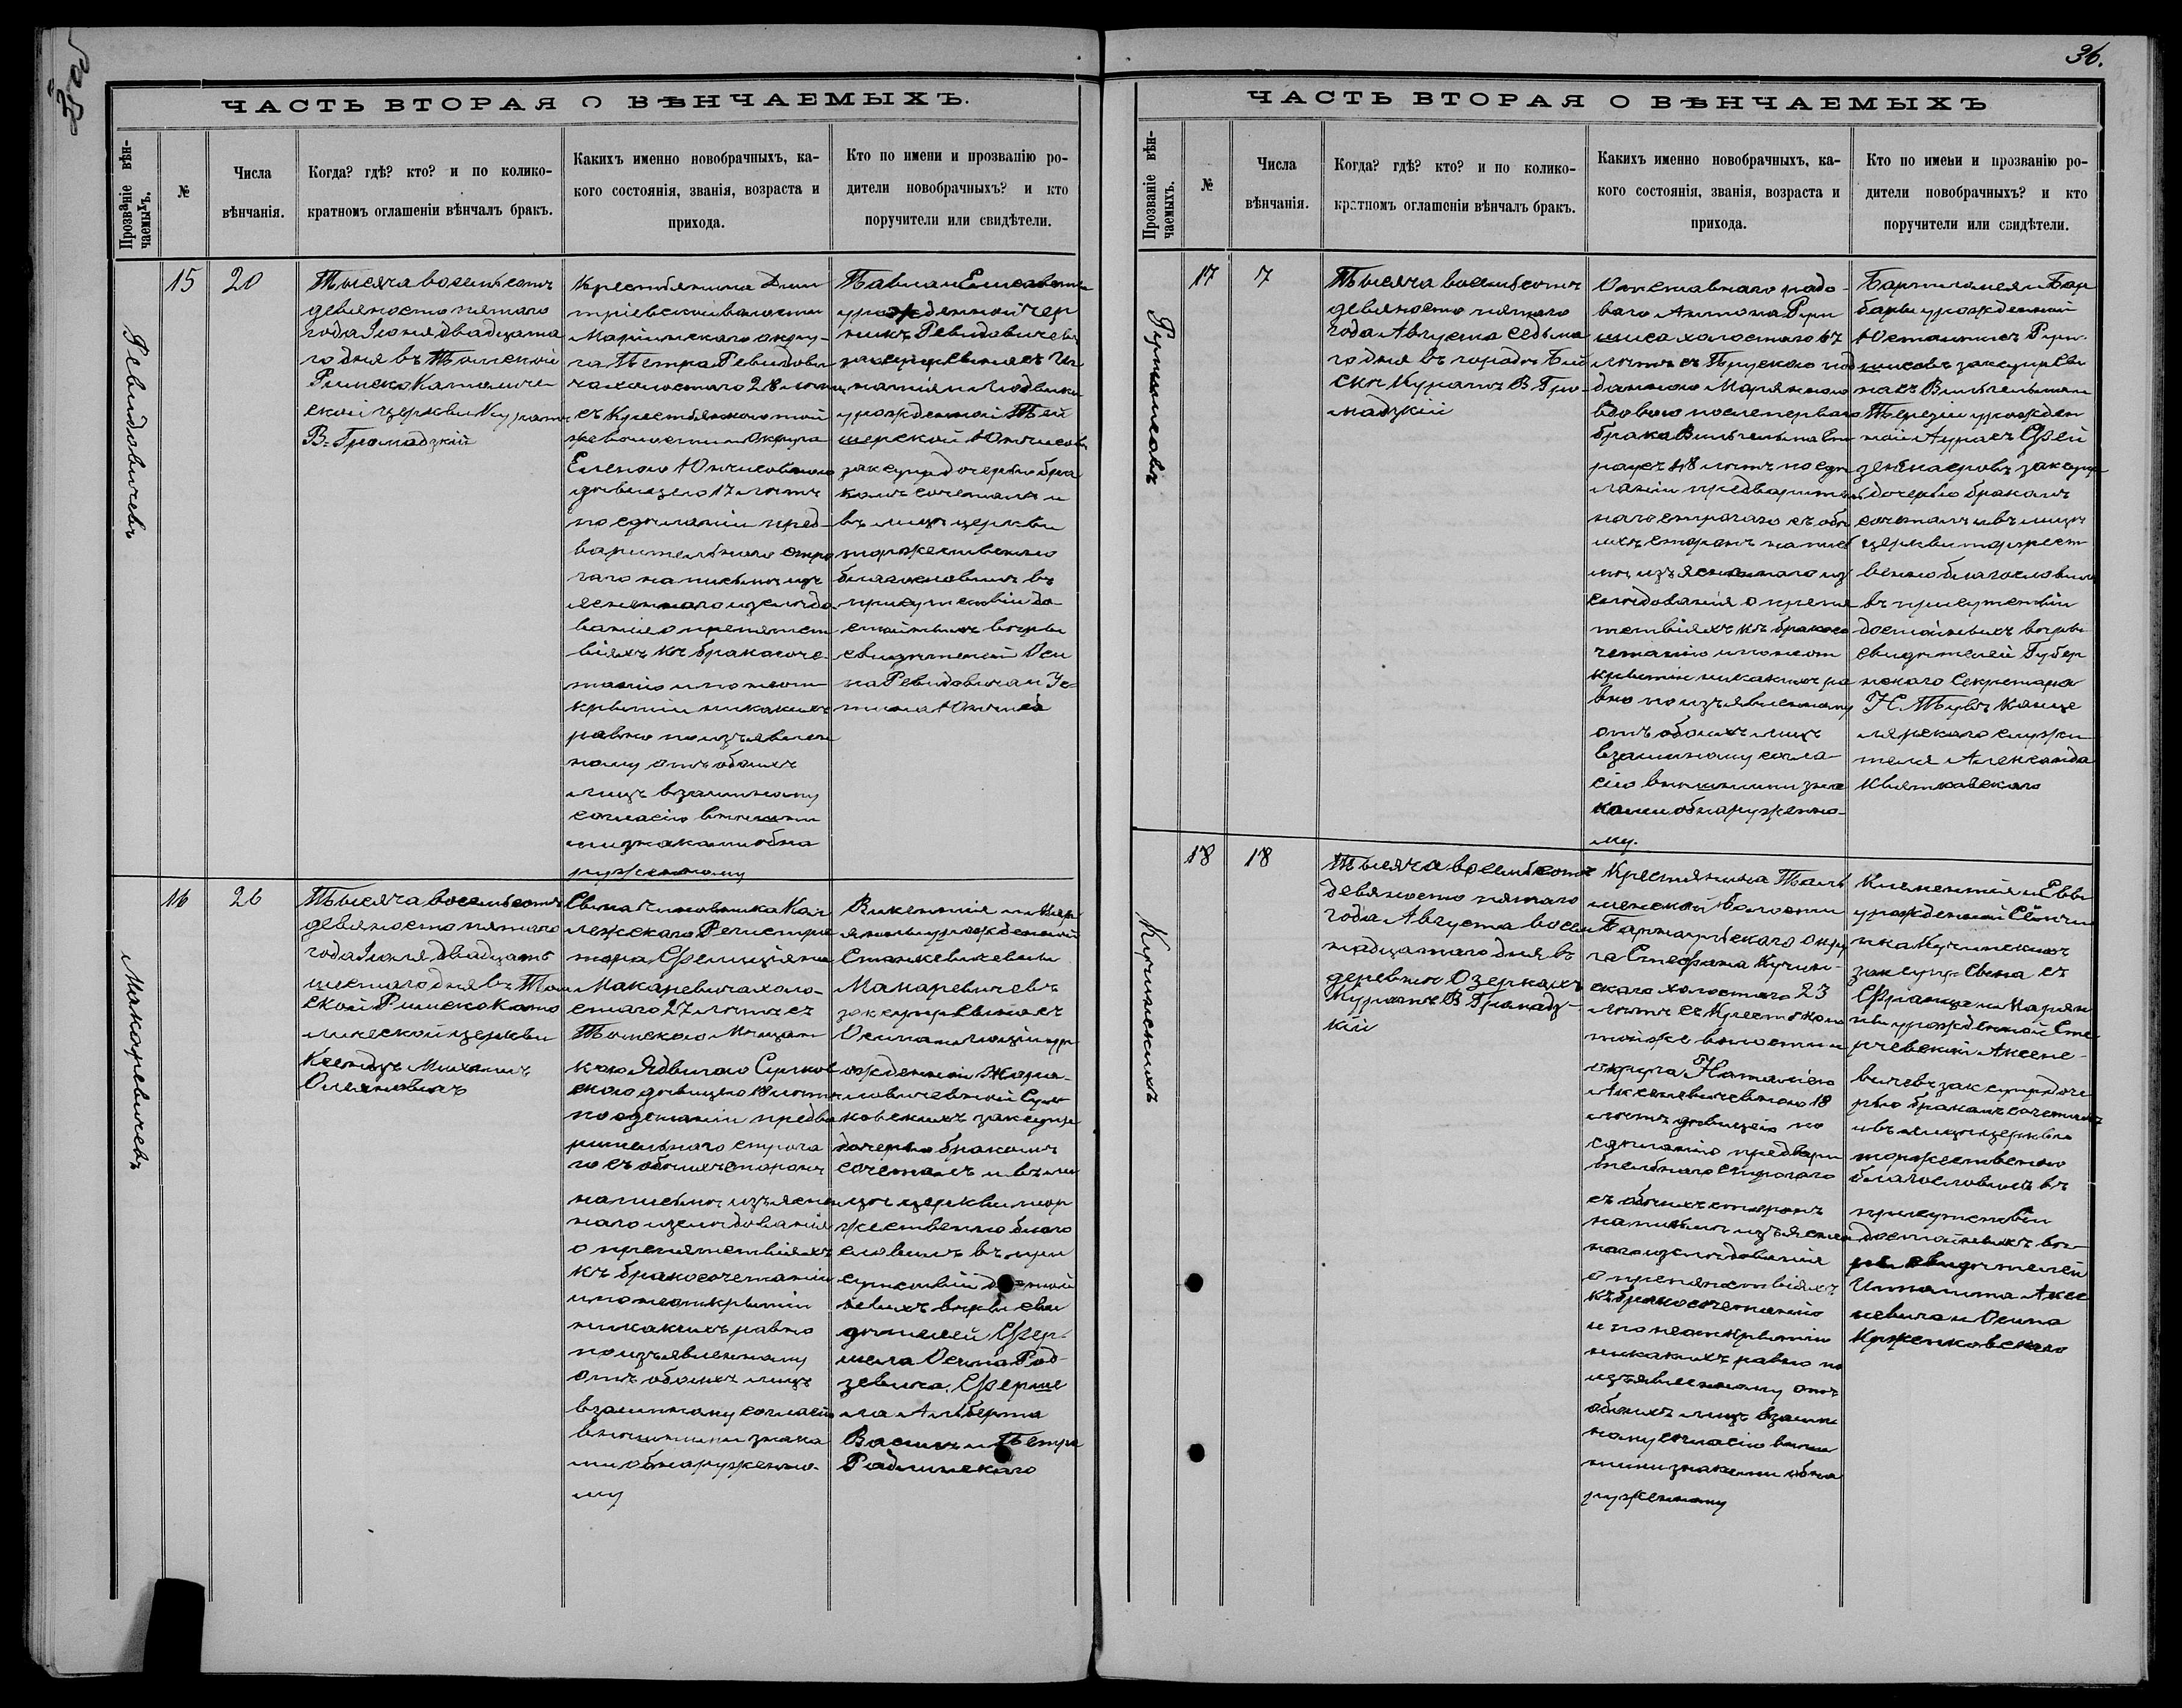 36.
ЧАСТЬ ВТОРАЯ О ВѢНЧАЕМЫХЪ.
Прозваніе вѣн-
чаемыхъ.
№
Числа
вѣнчанія.
Когда? гдѣ? кто? и по колико-
кратномъ оглашеніи вѣнчалъ бракъ.
Какихъ именно новобрачныхъ, ка-
кого состоянія, званія, возраста и
прихода.
Кто по имени и прозванію ро-
дители новобрачныхъ? и кто
поручители или свидѣтели.
Ревидовичевъ
15
20
Тысяча восемьсотъ
девяносто пятаго
года Іюня двадцата
го дня въ Томской
Римско Католиче
ской церкви Куратъ
В. Громадзкій
Крестьянина Дми
тріевской волости
Маріинскаго окру-
га Петра Ревидови
ча холостаго 28 лѣтъ
съ Крестьянкою той
же волости и Округа
Еленою Юнчисовною
дѣвицею 17 лѣтъ
по сдѣланіи пред-
варительнаго стро
гаго на письмѣ изъ
ясненнаго изслѣдо
ванія о препятст
віяхъ къ бракосоче-
танію и по неот
крытіи никакихъ
равно по изъявлен
ному отъ обоихъ
лицъ взаимному
согласію внѣшни
ми знаками обна
руженному
Павла и Елисаветы
урожденной Чер
никъ Ревидовичевъ
закс: супр: сына съ Иг
натія и Людвики
урожденной Тей
шерской Юнчисовъ
зак супр дочерью бра
комъ сочеталъ и
въ лицѣ церкви
торжественно
благословилъ въ
присутствіи до
стойныхъ вѣры
свидѣтелей Оси
па Ревидовича и Ус
тина Юнчиса
Макаревичевъ
16
26
Тысяча восемьсотъ
девяносто пятаго
года Іюля двадцать
шестаго дня въ Том
ской Римско Като
лической церкви
Ксендзъ Михаилъ
Олехновичъ
Сына чиновника Кол
лежскаго Регистра
тора Фелиціяна
Макаревича холо-
стаго 27 лѣтъ съ
Томскою Мѣщан
кою Ядвигою Сулков
скою дѣвицею 18 лѣтъ
по сдѣланіи предва
рительнаго строга
го съ обоихъ сторонъ
на письмѣ изъяснен
наго изслѣдованія
о препятствіяхъ
къ бракосочетанію
и по неоткрытіи
никакихъ равно
по изъявленному
отъ обоихъ лицъ
взаимному согласію
внѣшними знака
ми обнаруженно-
му
Викентія и Мар
янны урожденной
Станкевичевны
Макаревичевъ
зак супр сына съ
Осипа и Люціи ур
ожденной
Сул
ковскихъ зак супр
дочерью бракомъ
сочеталъ и въ ли
цѣ церкви тор
жественно благо
словилъ въ при
сутствіи достой
ныхъ вѣры сви
дѣтелей Фер
шела Осипа Род
зевича, Ферше
ла Альберта
Васил и Петра
Радлинскаго
ЧАСТЬ ВТОРАЯ О ВѢНЧАЕМЫХЪ
Прозваніе вѣн-
чаемыхъ.
№
Числа
вѣнчанія.
Когда? гдѣ? кто? и по колико-
кратномъ оглашеніи вѣнчалъ бракъ.
Какихъ именно новобрачныхъ, ка-
кого состоянія, званія, возраста и
прихода.
Кто по имени и прозванію ро-
дители новобрачныхъ? и кто
поручители или свидѣтели.
17
7
Тысяча восемьсотъ
девяносто пятаго
года Августа седьма
го дня въ городѣ Бій
скѣ Куратъ В. Гро
мадзкій
Отставнаго рядо-
ваго Антона Рупи
шиса холостаго 67
лѣтъ съ Прускою под
данною Маріянною
вдовою послѣ перваго
брака
48 лѣтъ по сдѣ
ланіи предваритель
наго строгаго съ обо
ихъ сторонъ на пись
мѣ изъясненнаго из
слѣдованія о препя
тствіяхъ къ бракосо
четанію и по неот
крытіи никакихъ ра
вно по изъявленному
отъ обоихъ лицъ
взаимному согла-
сію внѣшними зна
ками обнаруженно-
му.
Бартломея и Бар
бары урожденной
Рупи-
шисовъ зак супр сы
на съ Вильгельма и
Терезіи урожден
ной
зак супр
дочерью бракомъ
сочеталъ и въ лицѣ
церкви торжест
венно благословилъ
въ присутствіи
достойныхъ вѣры
свидѣтелей Губер
нскаго Секретаря
Канце
лярскаго служи-
теля Александра
Квятковскаго
Кучинскихъ
18
18
Тысяча восемьсотъ
девяносто пятаго
года Августа восем
надцатаго дня въ
деревнѣ Озеркахъ
Куратъ В. Громадз-
кій
Крестьянина Таль
менской волости
Барнаульскаго окру
га Стефана Кучин-
скаго холостаго 23
лѣтъ съ Крестьянкою
той же волости и
округа Наталіею
Аксеневичевною 18
лѣтъ дѣвицею по
сдѣланіи предвари
тельнаго строгаго
съ обоихъ сторонъ
на письмѣ изъяснен
наго изслѣдованія
о препятствіяхъ
къ бракосочетанію
и по неоткрытіи
никакихъ равно по
изъявленному отъ
обоихъ лицъ взаим
ному согласію внѣш
ними знаками обна
руженному
Климентія и Евы
урожденной
Кучинскихъ
зак супр сына съ
Франца и Маріян
ны урожденной
Аксене-
вичевъ зак супр доче
рью бракомъ сочеталъ
и въ лицѣ церкви
торжественно
благословилъ въ
присутствіи
достойныхъ вѣ-
ры свидѣтелей
Ипполита Аксе
невича и Осипа
Крженковскаго